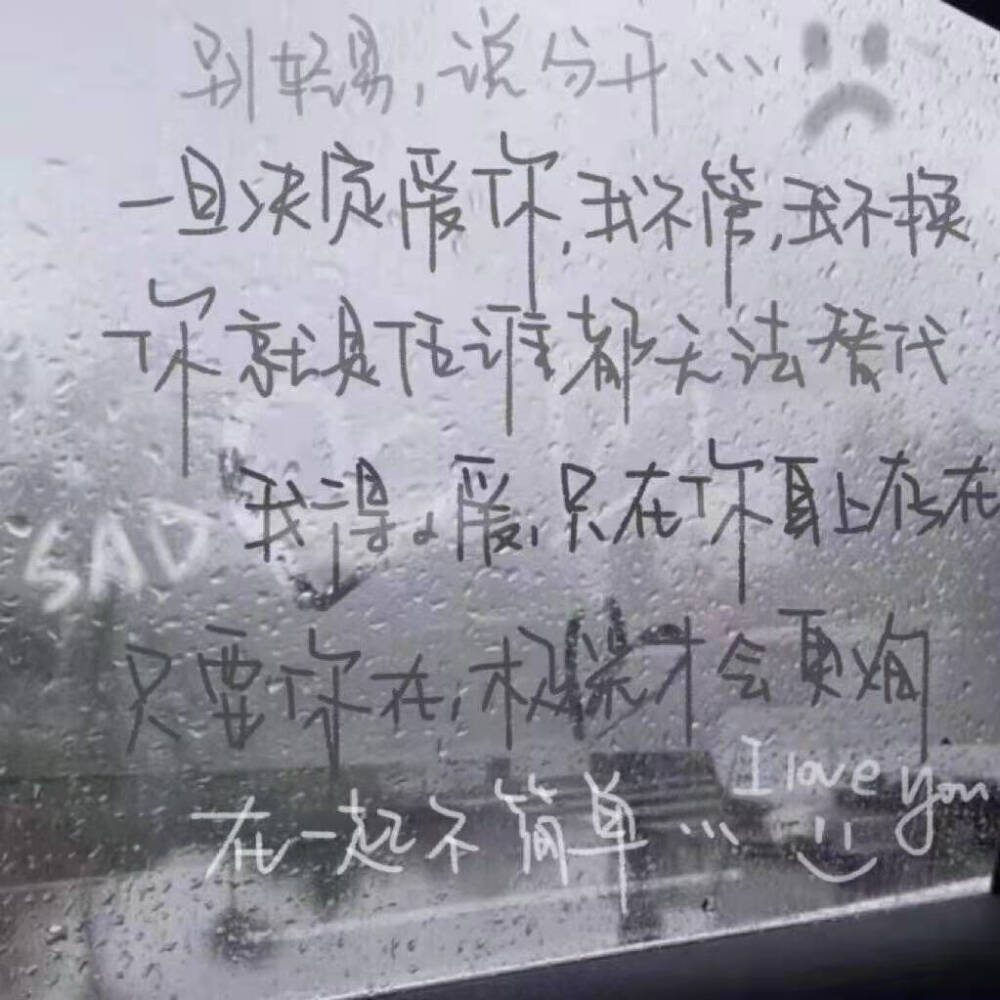 别轻易，说分开...
一旦决定爱你，我不管，我不换
你就是任谁都无法替代
SAD
我得爱，只在你身上存在
只要你在，极深才会更炯
I love you
在一起不简单...